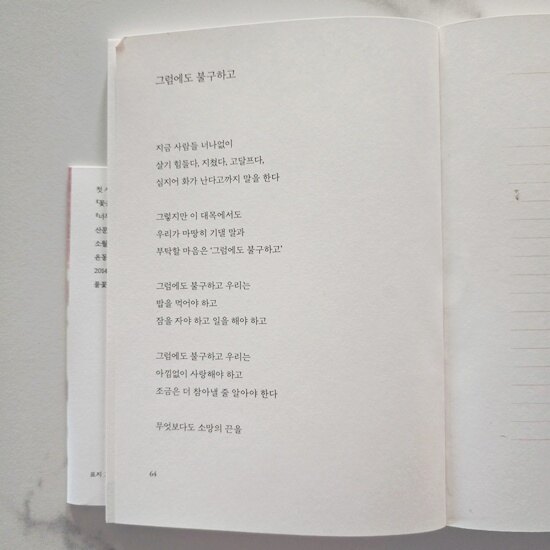 그럼에도 불구하고
지금 사람들 너나없이
살기 힘들다, 지쳤다, 고달프다,
심지어 화가 난다고까지 말을 한다
그렇지만 이 대목에서도
우리가 마땅히 기댈 말과
부탁할 마음은 '그럼에도 불구하고'
그럼에도 불구하고 우리는
밥을 먹어야 하고
잠을 자야 하고 일을 해야 하고
그럼에도 불구하고 우리는
아낌없이 사랑해야 하고
조금은 더 참아낼 줄 알아야 한다
무엇보다도 소망의 끈을
64
첫
산문
소월
2014
풀꽃
표지